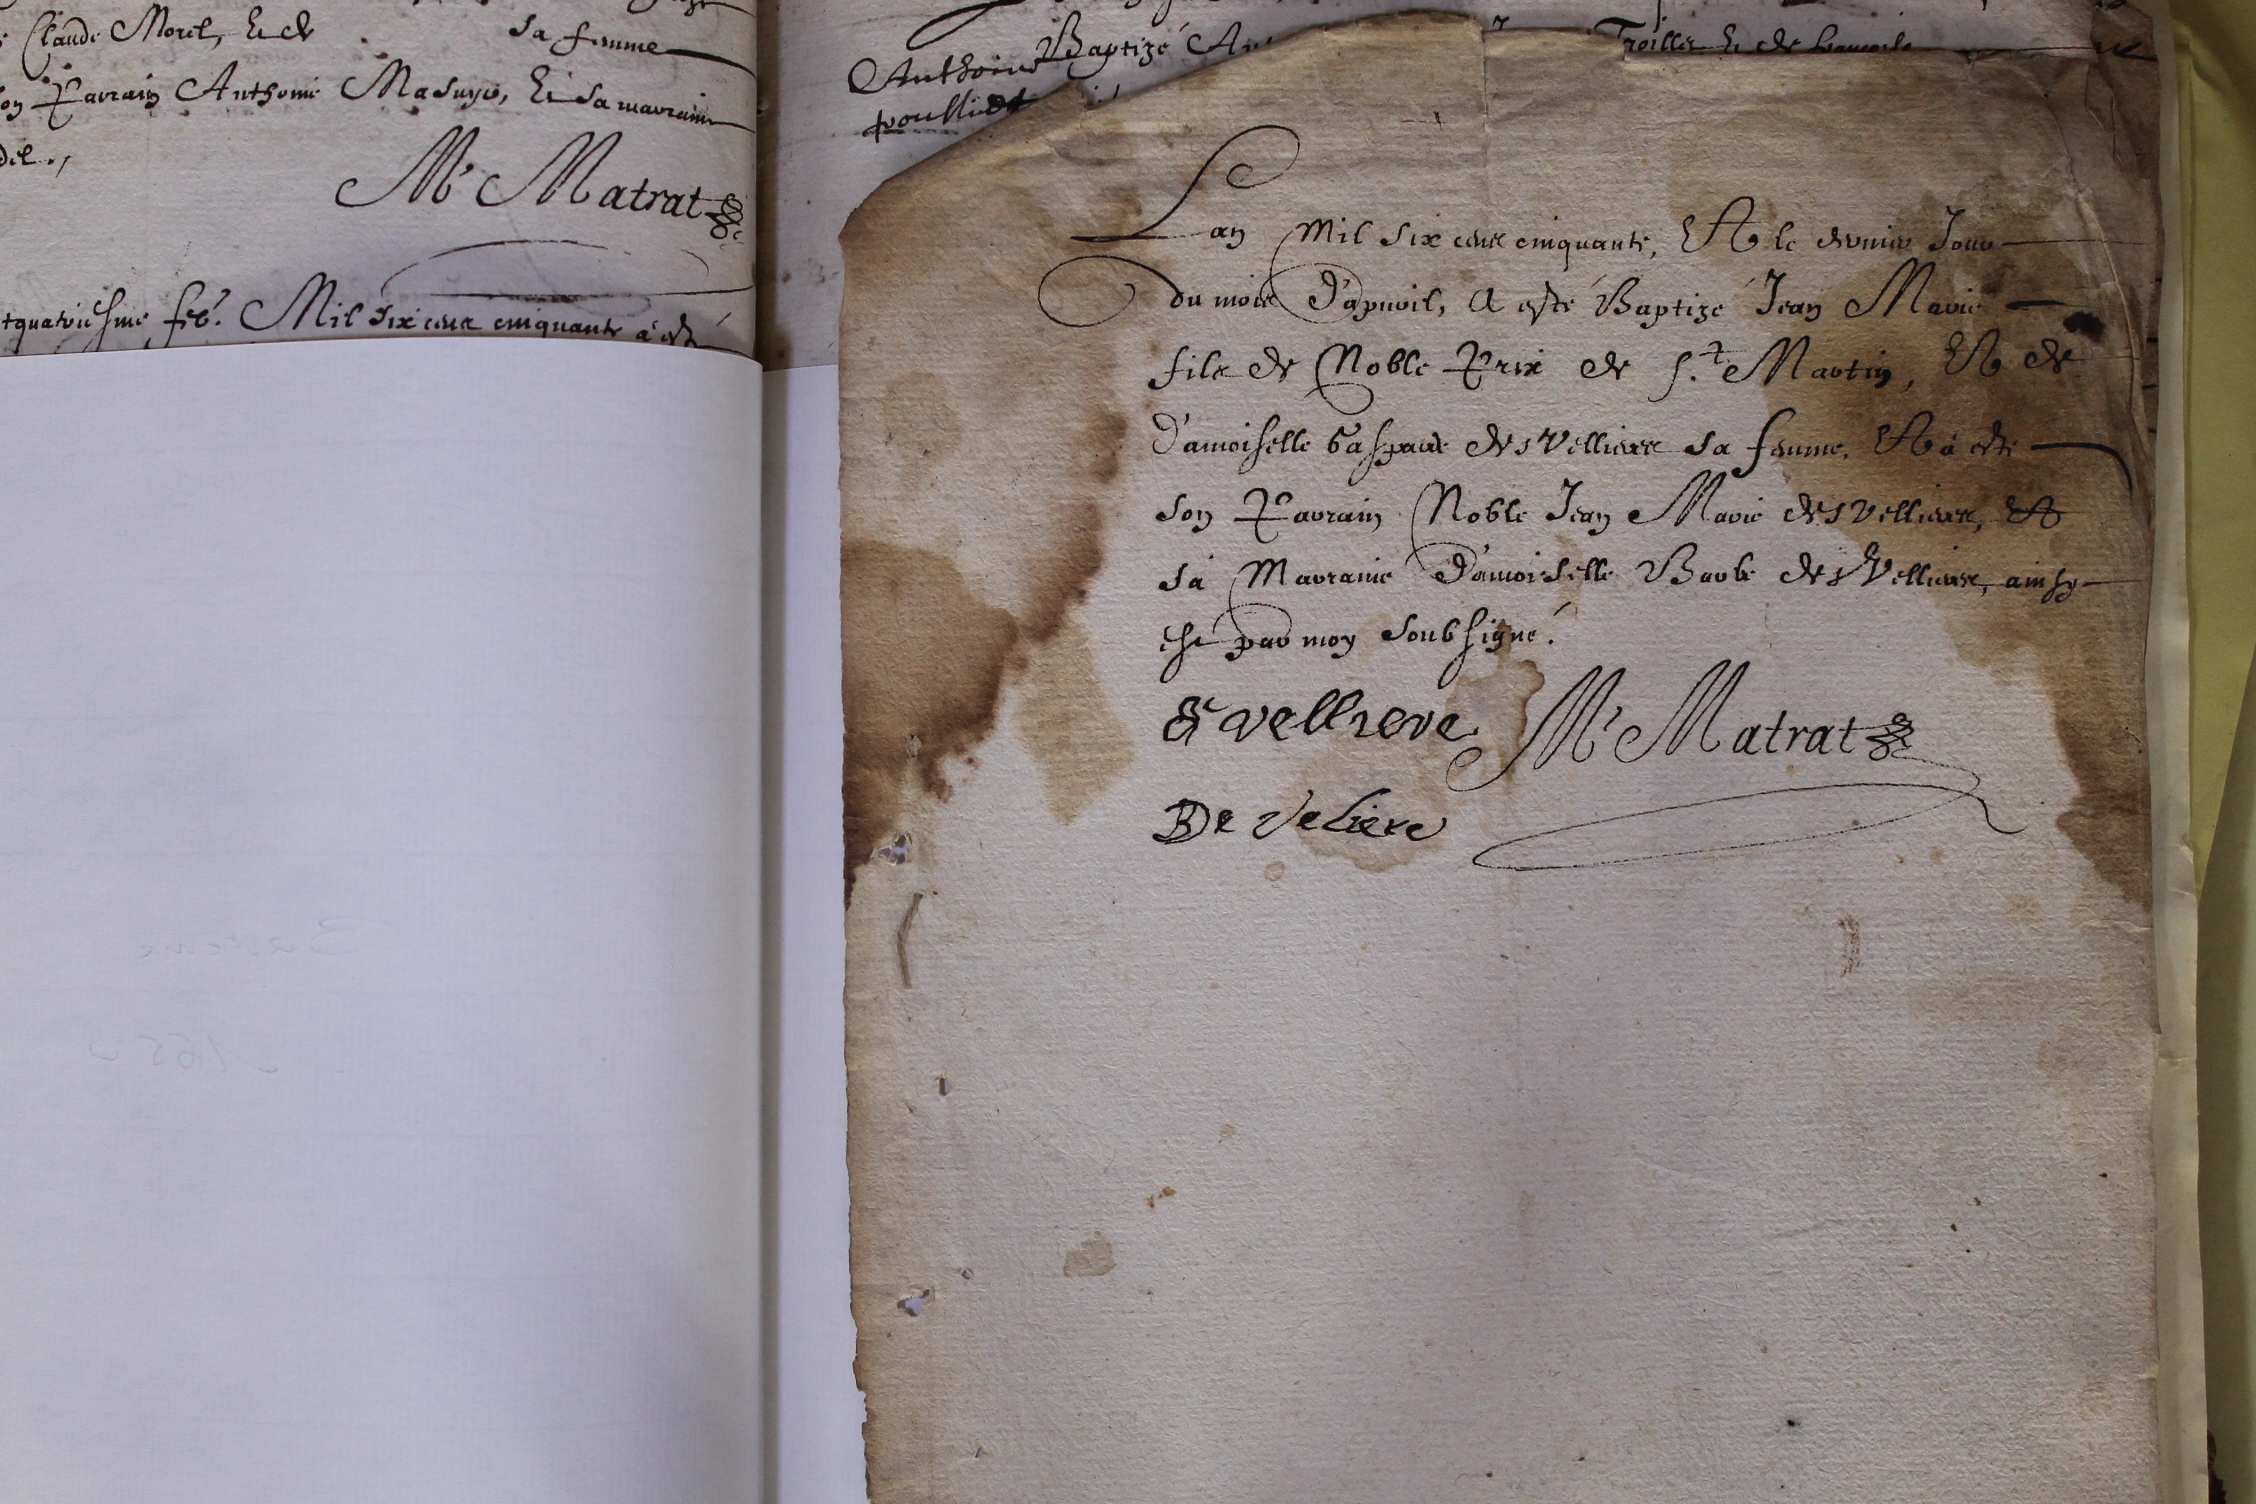 Claude Morel, et de sa femme
Parrain Anthoine Masuyo, et sa marraine
del.,
M^r Matrat
fév^r. Mil six cens cinquante a esté
Baptizé
Anthoine
L'an Mil six cens cinquante, Et le dernier Jour
du mois D'apvril, A esté Baptizé Jean Marie
fils de Noble Prix de S.^t Martin, Et de
D'amoiselle Gasparde desVellieres sa femme, Et a esté
son Parrain Noble Jean Marie desVellieres, Et
sa Marraine D'amoiselle Barbe desVellieres, ainsy
est par moy soubsigné.
vellieve M^r Matrat
De veliere